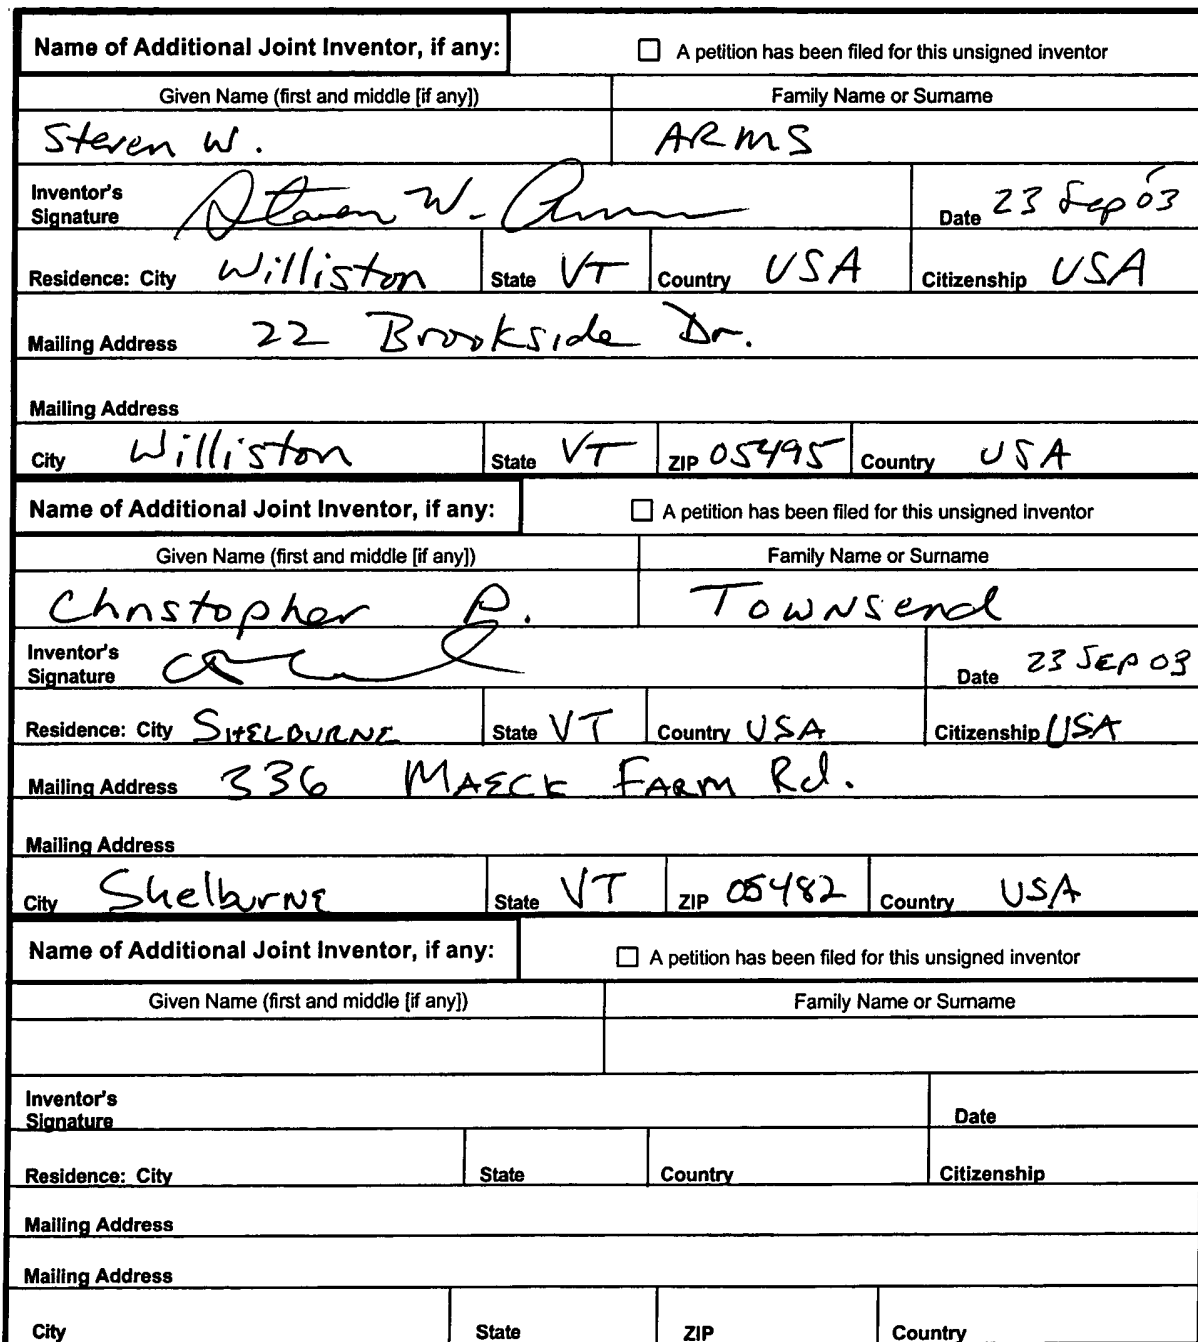 Name of Additional Joint Inventor, if any: ☐ A petition has been filed for this unsigned inventor
Given Name (first and middle [if any]) Family Name or Surname
Steven W. ARMS
Inventor's
Signature Steven W. Arms Date 23 Sep '03
Residence: City Williston State VT Country USA Citizenship USA
Mailing Address 22 Brookside Dr.
Mailing Address
City Williston State VT ZIP 05495 Country USA
Name of Additional Joint Inventor, if any: ☐ A petition has been filed for this unsigned inventor
Given Name (first and middle [if any]) Family Name or Surname
Christopher P. Townsend
Inventor's
Signature Date 23 SEP 03
Residence: City SHELBURNE State VT Country USA Citizenship USA
Mailing Address 336 MAECK FARM Rd.
Mailing Address
City Shelburne State VT ZIP 05482 Country USA
Name of Additional Joint Inventor, if any: ☐ A petition has been filed for this unsigned inventor
Given Name (first and middle [if any]) Family Name or Surname
Inventor's
Signature Date
Residence: City State Country Citizenship
Mailing Address
Mailing Address
City State ZIP Country